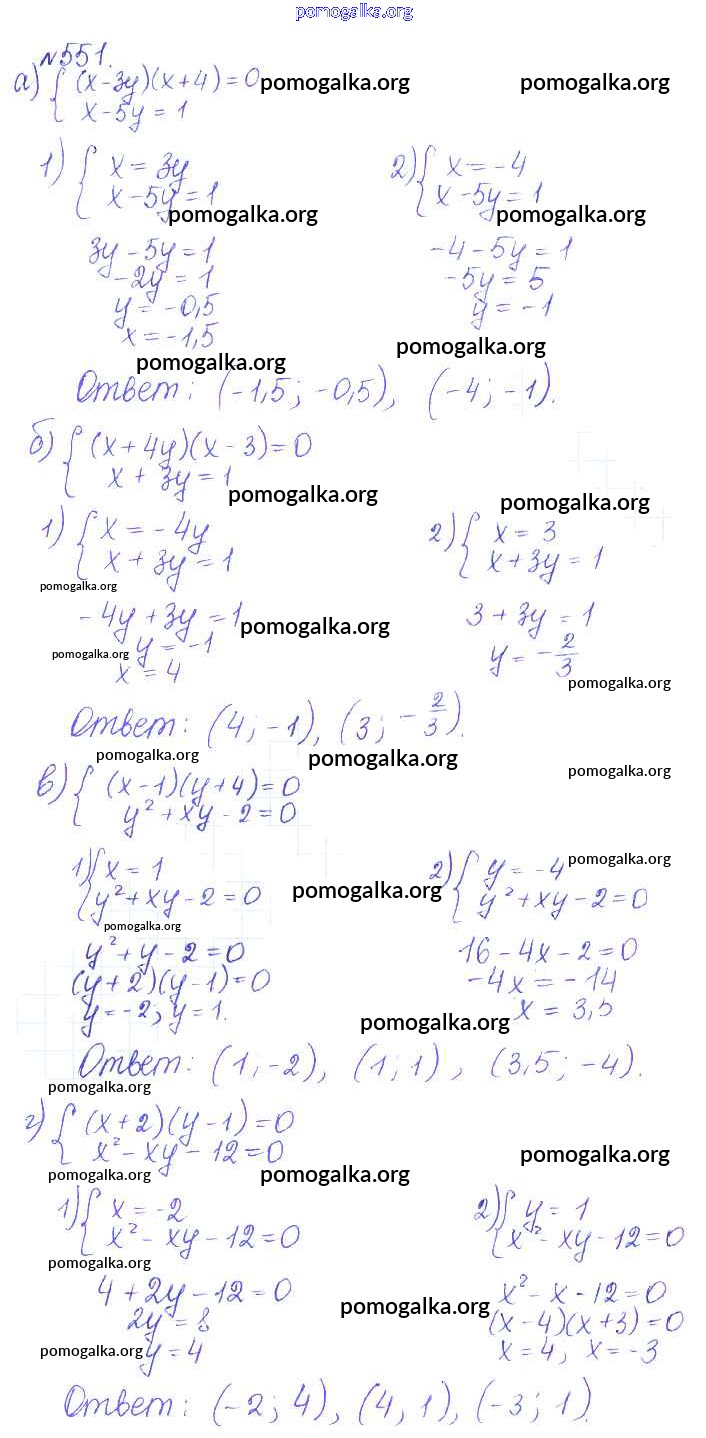 pomogalka.org
№551.
а) { (x-3y)(x+4)=0 pomogalka.org pomogalka.org
x-5y=1
1) { x=3y 2) { x=-4
x-5y=1 x-5y=1
pomogalka.org pomogalka.org
3y-5y=1 -4-5y=1
-2y=1 -5y=5
y=-0,5 y=-1
x=-1,5
pomogalka.org pomogalka.org
Ответ: (-1,5; -0,5), (-4; -1).
б) { (x+4y)(x-3)=0
x+3y=1
pomogalka.org pomogalka.org
1) { x=-4y 2) { x=3
x+3y=1 x+3y=1
pomogalka.org
-4y+3y=1 pomogalka.org 3+3y=1
pomogalka.org y=-1 y=-2/3
x=4
pomogalka.org
Ответ: (4; -1), (3; -2/3).
pomogalka.org pomogalka.org pomogalka.org
в) { (x-1)(y+4)=0
y²+xy-2=0
1) { x=1 2) { y=-4 pomogalka.org
y²+xy-2=0 pomogalka.org y²+xy-2=0
pomogalka.org
y²+y-2=0 16-4x-2=0
(y+2)(y-1)=0 -4x=-14
y=-2; y=1. x=3,5
pomogalka.org
Ответ: (1; -2), (1; 1), (3,5; -4).
pomogalka.org
г) { (x+2)(y-1)=0
x²-xy-12=0 pomogalka.org
pomogalka.org pomogalka.org
1) { x=-2 2) { y=1
x²-xy-12=0 x²-xy-12=0
pomogalka.org
4+2y-12=0 x²-x-12=0
2y=8 pomogalka.org (x-4)(x+3)=0
pomogalka.org y=4 x=4; x=-3
Ответ: (-2; 4), (4, 1), (-3; 1).